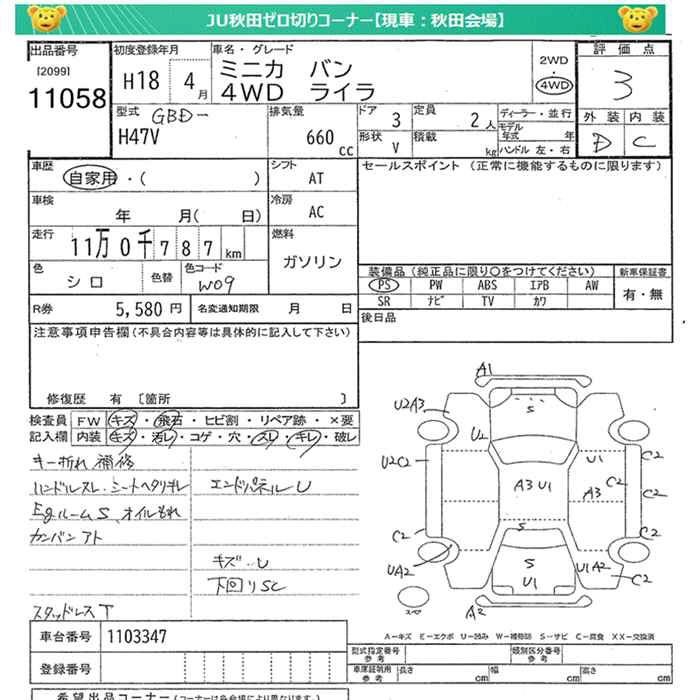 JU秋田ゼロ切りコーナー【現車：秋田会場】
出品番号
[2099]
11058
初度登録年月
H18 4月
車名・グレード
ミニカ バン
4WD ライラ
2WD
・
4WD
評価点
3
外装 内装
D C
型式 GBD-
H47V
排気量
660
cc
ドア 3
定員 2人
形状 V
積載 kg
ディーラー・並行
モデル年式 年
ハンドル 左・右
車歴
自家用・( )
シフト
AT
車検
年 月( 日)
冷房
AC
走行
11万0千787km
燃料
ガソリン
色
シロ
色替
色コード
W09
R券 5,580円
名変通知期限 月 日
セールスポイント (正常に機能するものに限ります)
装備品 (純正品に限り○をつけてください)
PS PW ABS エアB AW
SR ナビ TV カワ
新車保証書
有・無
後日品
注意事項申告欄(不具合内容等は具体的に記入して下さい)
修復歴 有 [箇所 ]
検査員記入欄
FW キズ・飛石・ヒビ割・リペア跡・×要
内装 キズ・汚レ・コゲ・穴・スレ・キレ・破レ
キー折れ 補修
ハンドルスレ・シートヘタリキレ
Egルーム S、オイルもれ
カンバンアト
スタッドレス T
エンドパネル U
キズ・U
下回り SC
A1
U2A3
S
U2
U1
C2
U2C2
A3U1
C2
A3
C2
C2
S
C2
UA2
S
U1
U1A2
C2
A2
A-キズ E-エクボ U-凹み W-補修跡 S-サビ C-腐食 XX-交換済
車台番号 1103347
登録番号
型式指定番号
参考
類別区分番号
参考
車庫証明用
参考
長さ cm
幅 cm
高さ cm
希望出品コーナー(コーナーは各会場により異なります。)